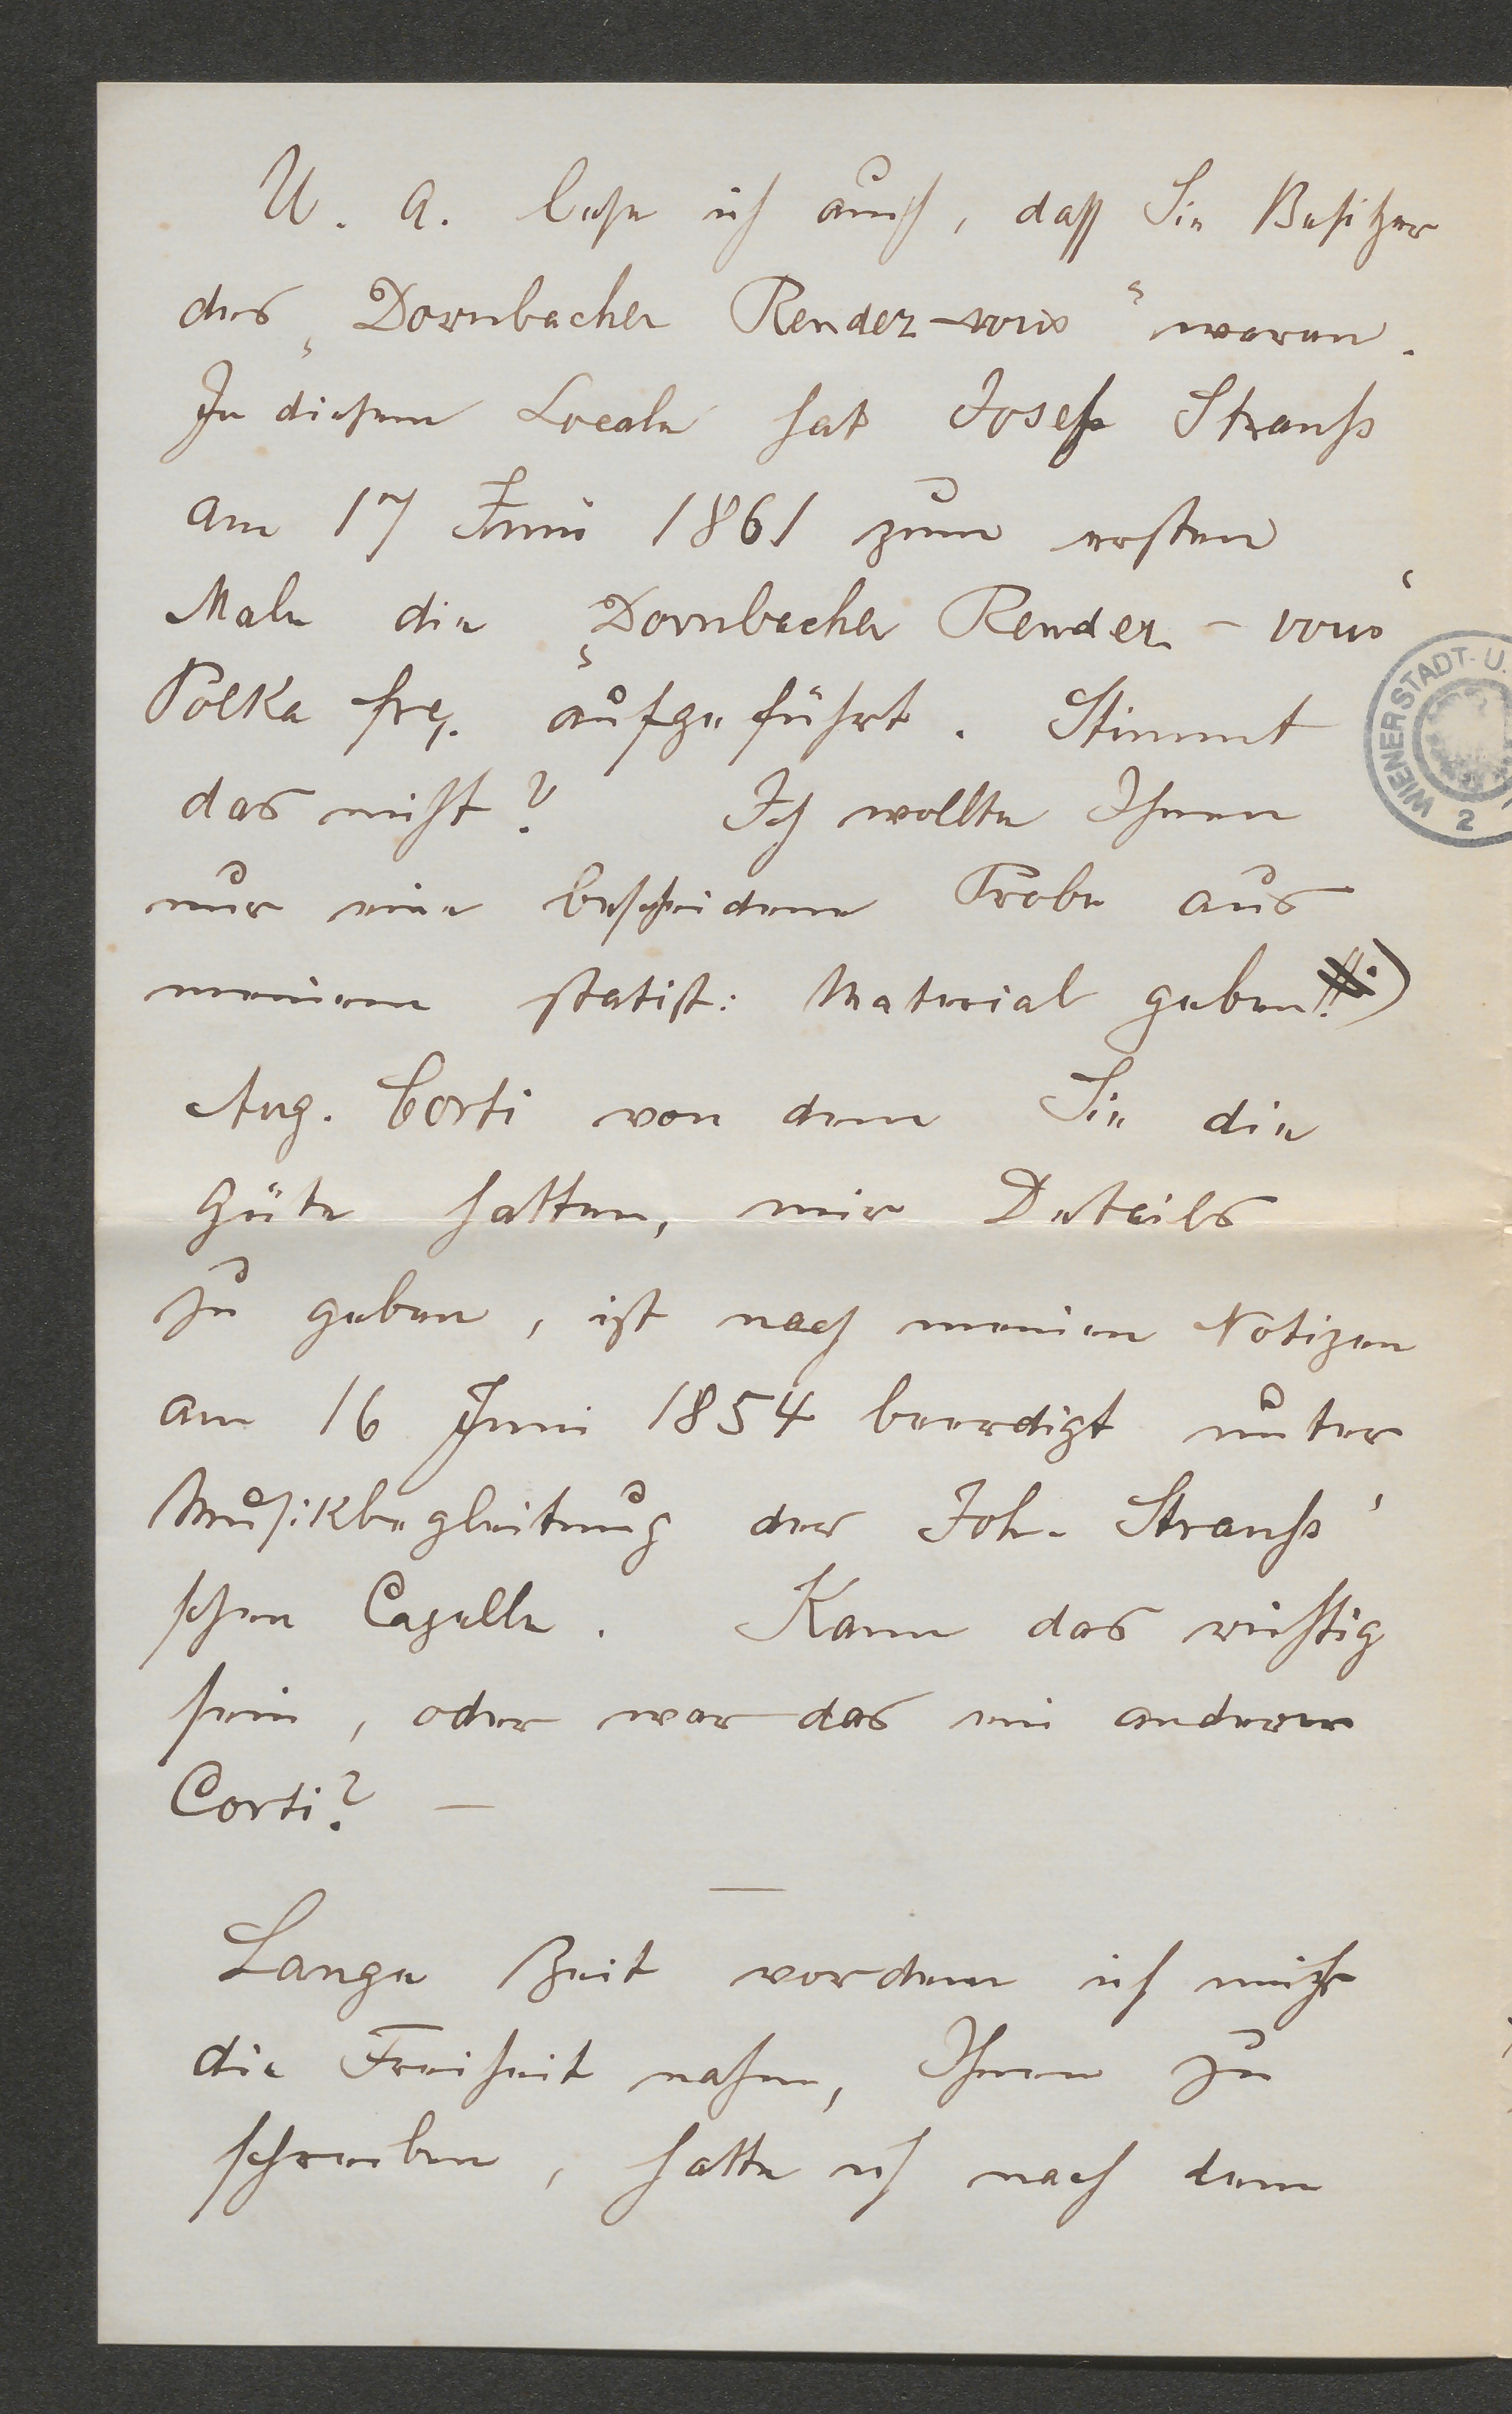 U. A. lese ich auch, daß Sie Besitzer
des „Dornbacher Rendez-vous“ waren.
In diesem Locale hat Josef Strauß
am 17 Juni 1861 zum ersten
Male die „Dornbacher Rendez-vous“
Polka frç. aufgeführt. Stimmt
das nicht? Ich wollte Ihnen
nur eine bescheidene Probe aus
meinem statist: Material geben!)
Aug. Corti von dem Sie die
Güte hatten, mir Details
zu geben, ist nach meinen Notizen
am 16 Juni 1854 beerdigt unter
Musikbegleitung der Joh. Strauß'
schen Capelle. Kann das richtig
sein, oder war das ein anderer
Corti? —
—
Lange Zeit vordem ich mir
die Freiheit nahm, Ihnen zu
schreiben, hatte ich nach dem
WIENER STADT- U.
2